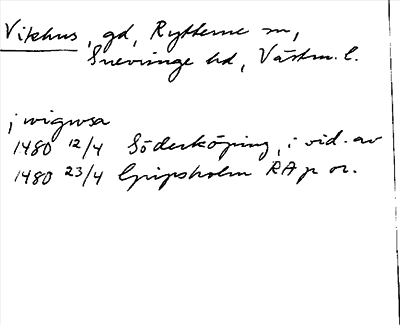 Vikhus, gd, Rytterne sn,
Snevringe hd, Västm. l.
i wigwsa
1480 12/4 Söderköping, i vid. av
1480 23/4 Gripsholm RA p or.